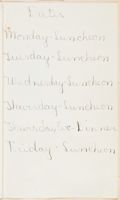 Dates
Monday - Luncheon
Tuesday - Luncheon
Wednesday - Luncheon
Thursday - Luncheon
Thursday Eve - Dinner
Friday - Luncheon